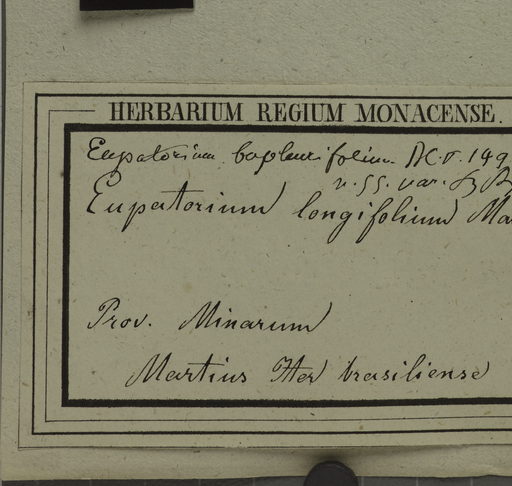 HERBARIUM REGIUM MONACENSE.
Eupatorium bupleurifolium DC. V. 149
n. 55. var. β
Eupatorium longifolium Ma
Prov. Minarum
Martius Iter brasiliense